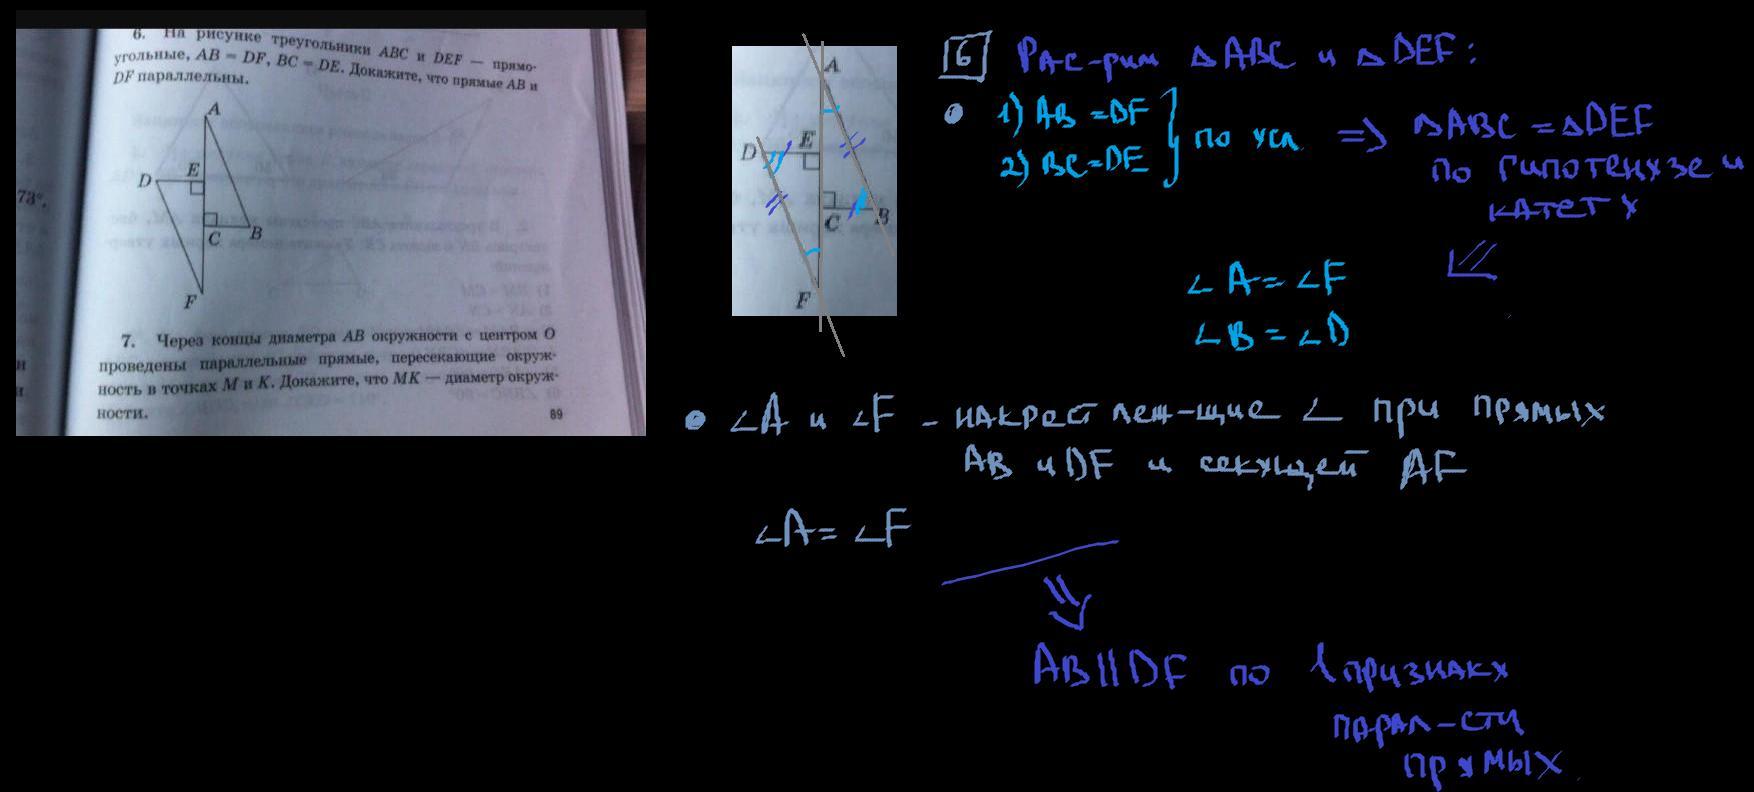 6. На рисунке треугольники ABC и DEF — прямо-
угольные, AB = DF, BC = DE. Докажите, что прямые AB и
DF параллельны.
A
E
D
C
B
F
73°,
7. Через концы диаметра AB окружности с центром O
проведены параллельные прямые, пересекающие окруж-
ность в точках M и K. Докажите, что MK — диаметр окруж-
ности.
89
A
E
D
C
B
F
6 Рас-рим △ABC и △DEF:
1) AB = DF
2) BC = DE
по усл
=> △ABC = △DEF
по гипотенузе и
катету
∠A = ∠F
∠B = ∠D
∠A и ∠F - накрест леж-щие ∠ при прямых
AB и DF и секущей AF
∠A = ∠F
AB || DF по 1 признаку
парал-сти
прямых.